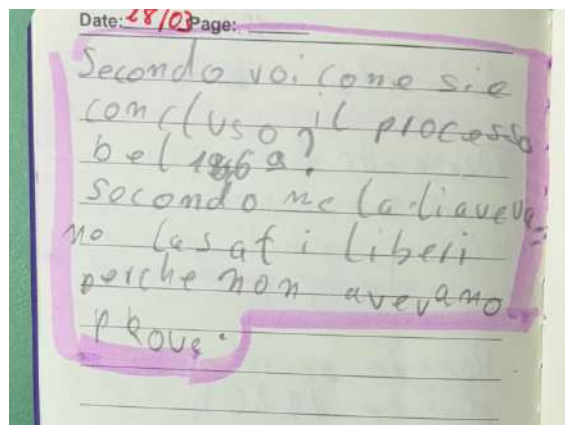 Date: 28/03 Page:
Secondo voi come sie
concluso il processo
bel 1969?
Secondo me la liaveva=
no lasati liberi
perche non avevano
prove.